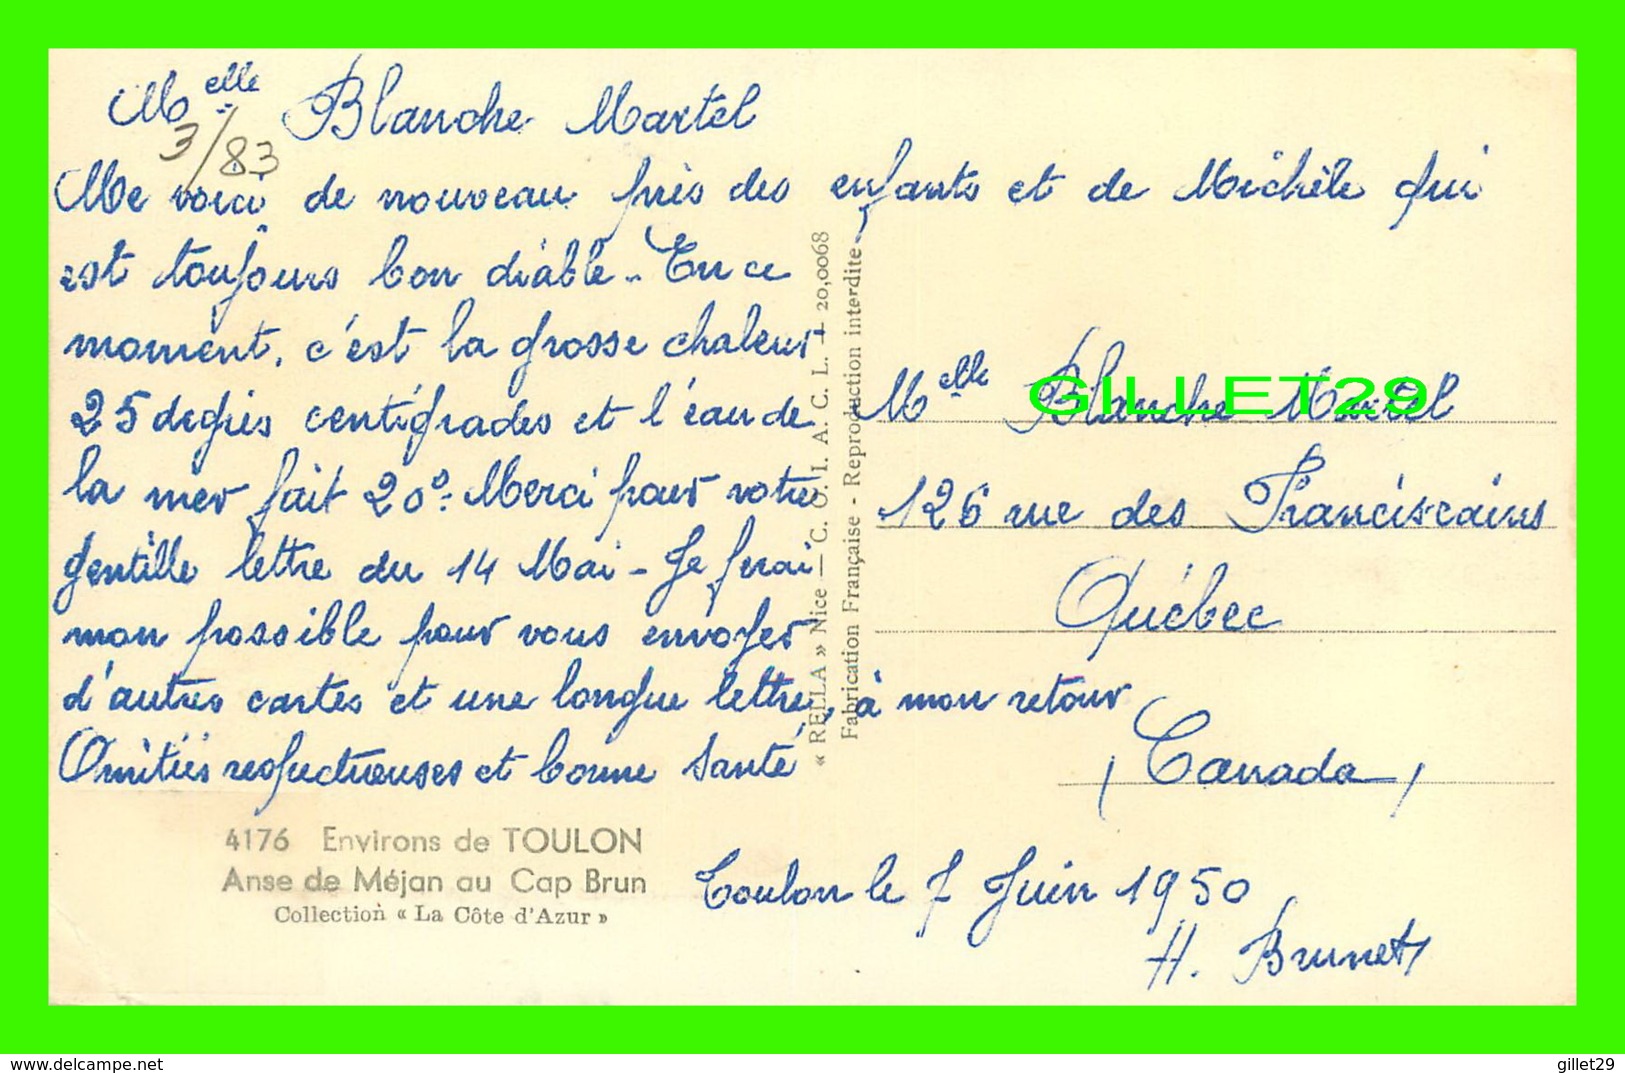 Melle Blanche Martel
3/83
Me voici de nouveau près des enfants et de Michèle qui
est toujours bon diable - En ce
moment, c'est la grosse chaleur
25 degrés centigrades et l'eau de
la mer fait 20°. Merci pour votre
gentille lettre du 14 Mai - Je ferai
mon possible pour vous envoyer
d'autres cartes et une longue lettre, à mon retour
Amitiés respectueuses et bonne santé
4176 Environs de TOULON
Anse de Méjan au Cap Brun
Collection « La Côte d'Azur »
« RELLA » Nice — C. O. I. A. C. L. + 20,0068
Fabrication Française - Reproduction interdite
Melle Blanche Martel
GILLET29
126 rue des Franciscains
Québec
(Canada)
Toulon le 7 Juin 1950
H. Brunet
delcampe.net
gillet29